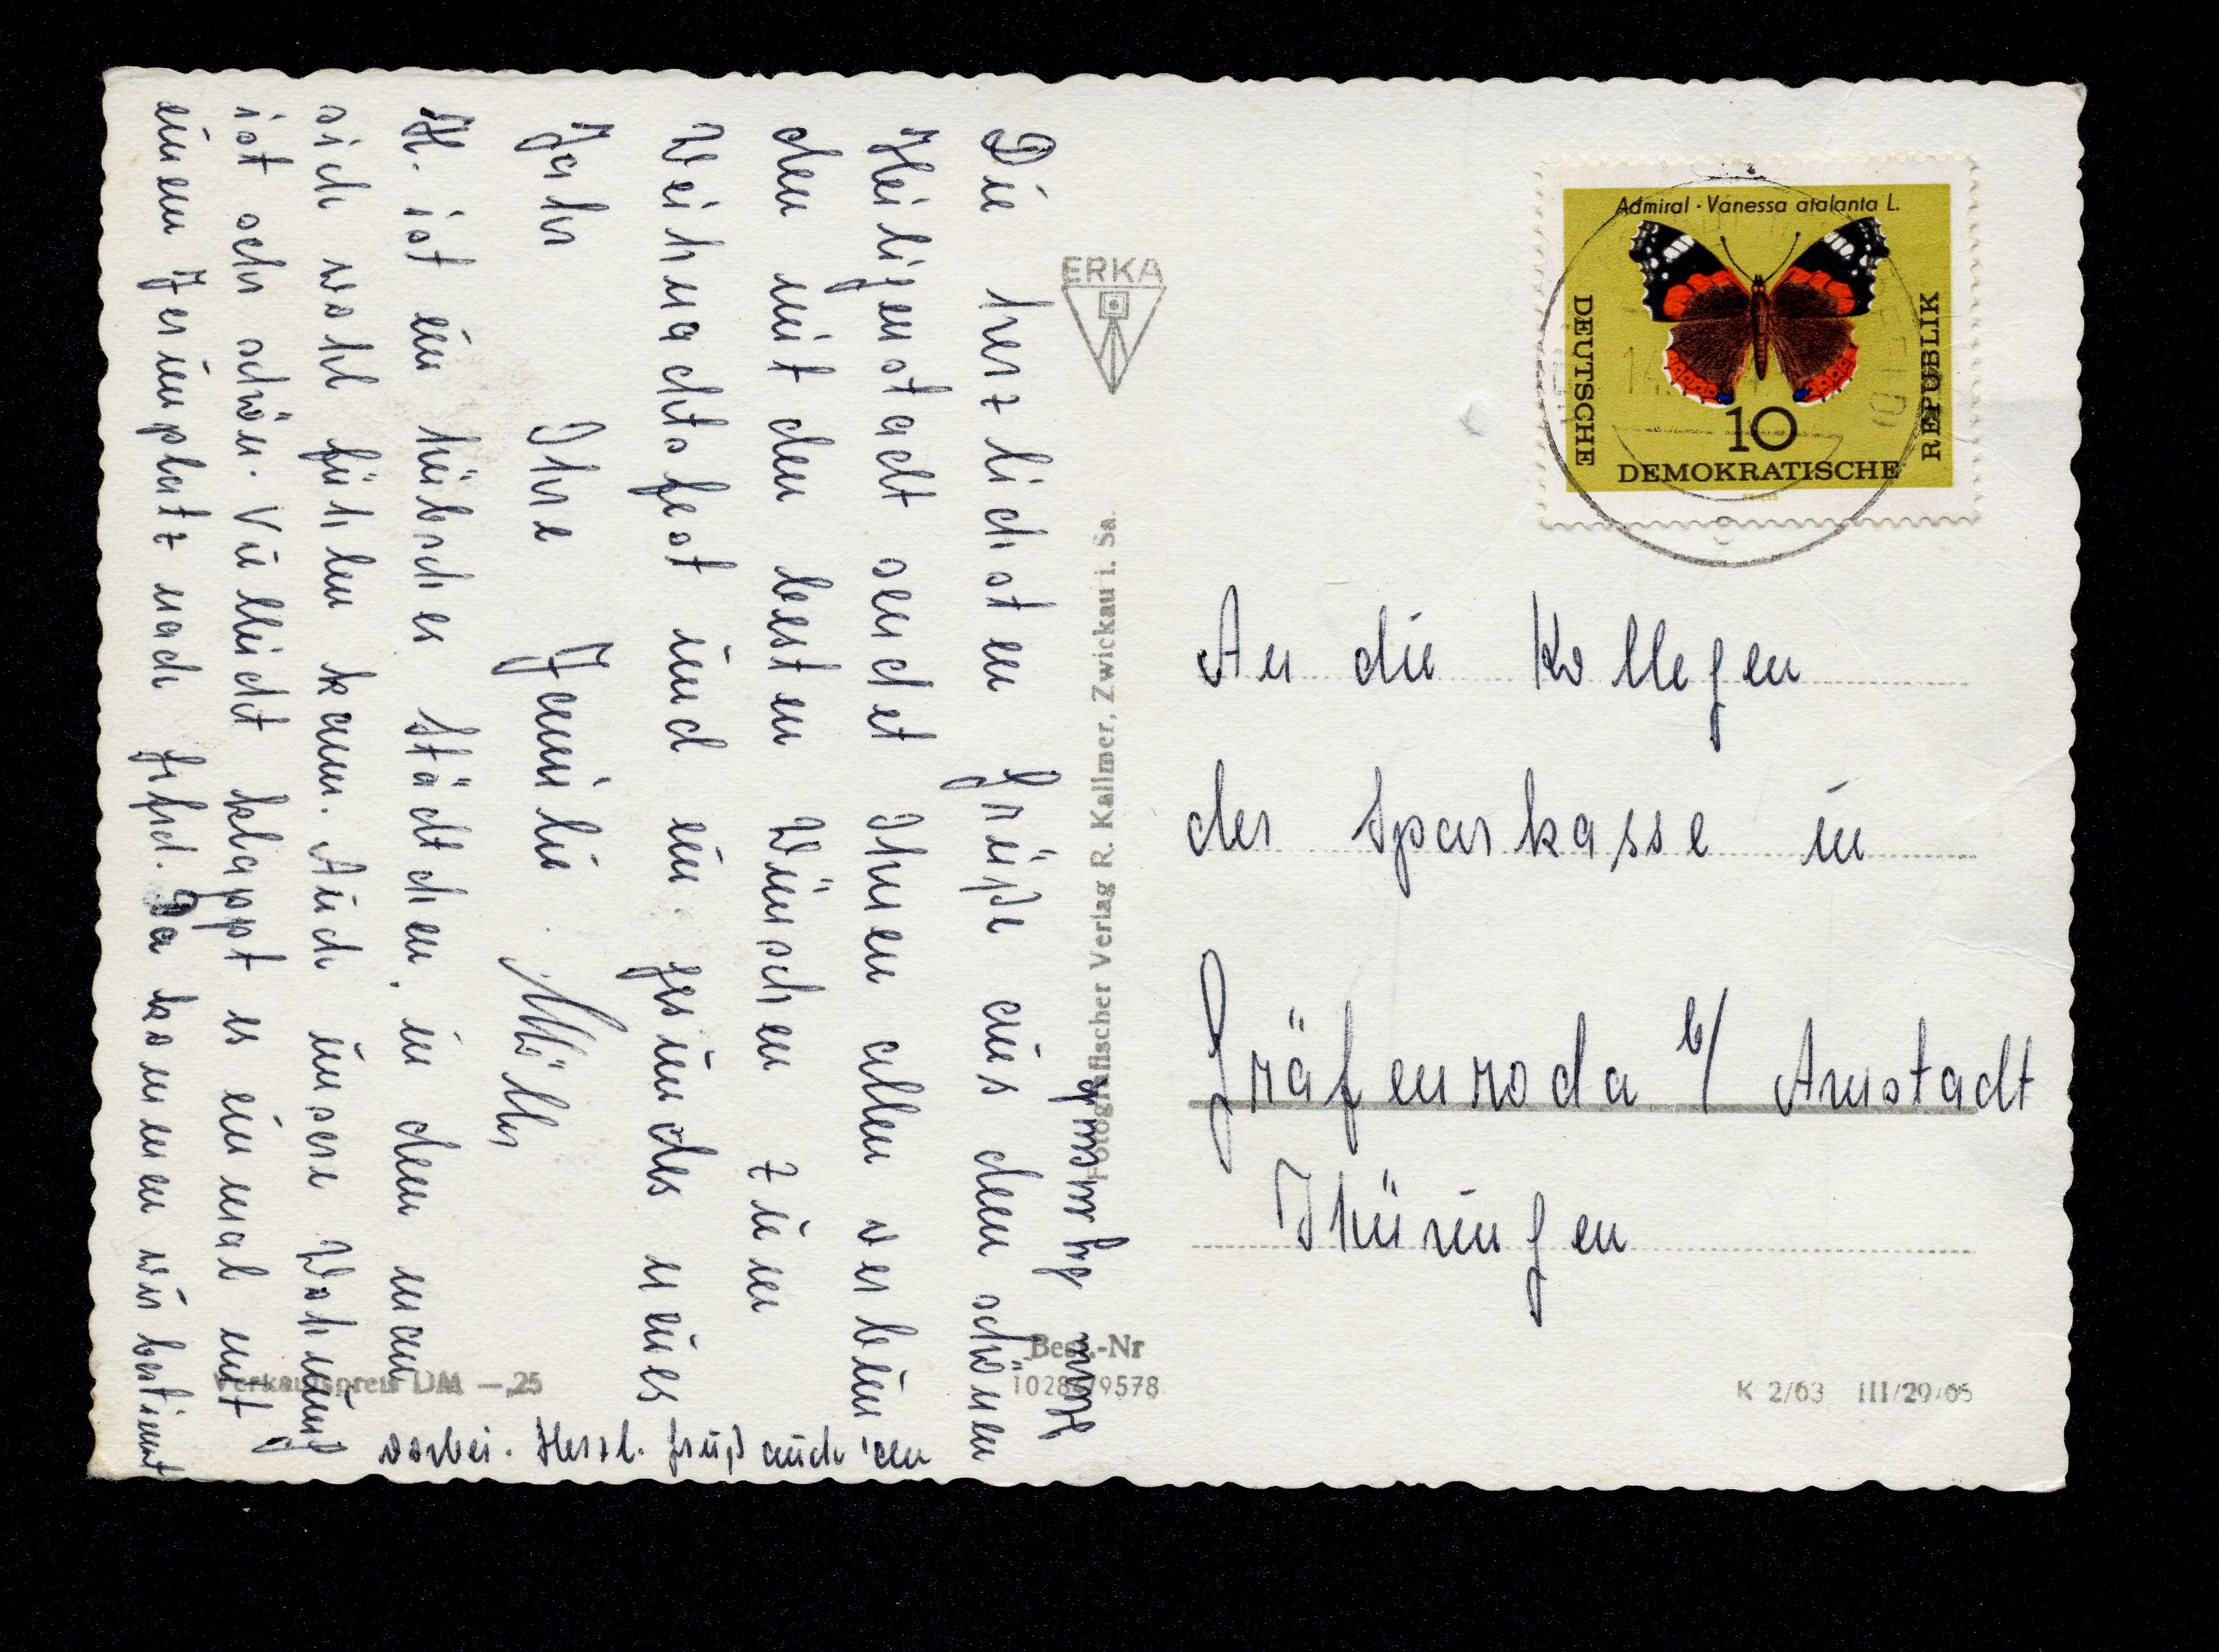 Die herzlichsten Grüße aus dem schönen
Heiligenstadt sendet Ihnen allen verbun
den mit den besten Wünschen zum
Weihnachtsfest und ein gesundes neues
Jahr Ihre Familie Müller
H. ist ein hübsches Städtchen, in dem man
sich wohl fühlen kann. Auch unsere Wohnung
ist sehr schön. Vielleicht klappt es einmal mit
einem Ferienplatz nach Gfrd. Da kommen wir bestimmt
vorbei. Herzl. Gruß auch an
Herrn
ERKA
Fotografischer Verlag R. Kallmer, Zwickau i. Sa.
Best.-Nr
Verkaufspreis DM —,25
Admiral · Vanessa atalanta L.
DEUTSCHE
DEMOKRATISCHE
REPUBLIK
10
An die Kollegen
der Sparkasse in
Gräfenroda b/ Arnstadt
Thüringen
K 2/63 III/29/65